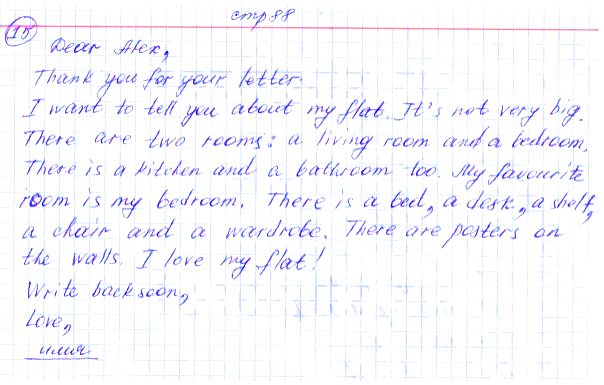 стр 88
15
Dear Alex,
Thank you for your letter.
I want to tell you about my flat. It's not very big.
There are two rooms: a living room and a bedroom.
There is a kitchen and a bathroom too. My favourite
room is my bedroom. There is a bed, a desk, a shelf,
a chair and a wardrobe. There are posters on
the walls. I love my flat!
Write back soon,
Love,
имя